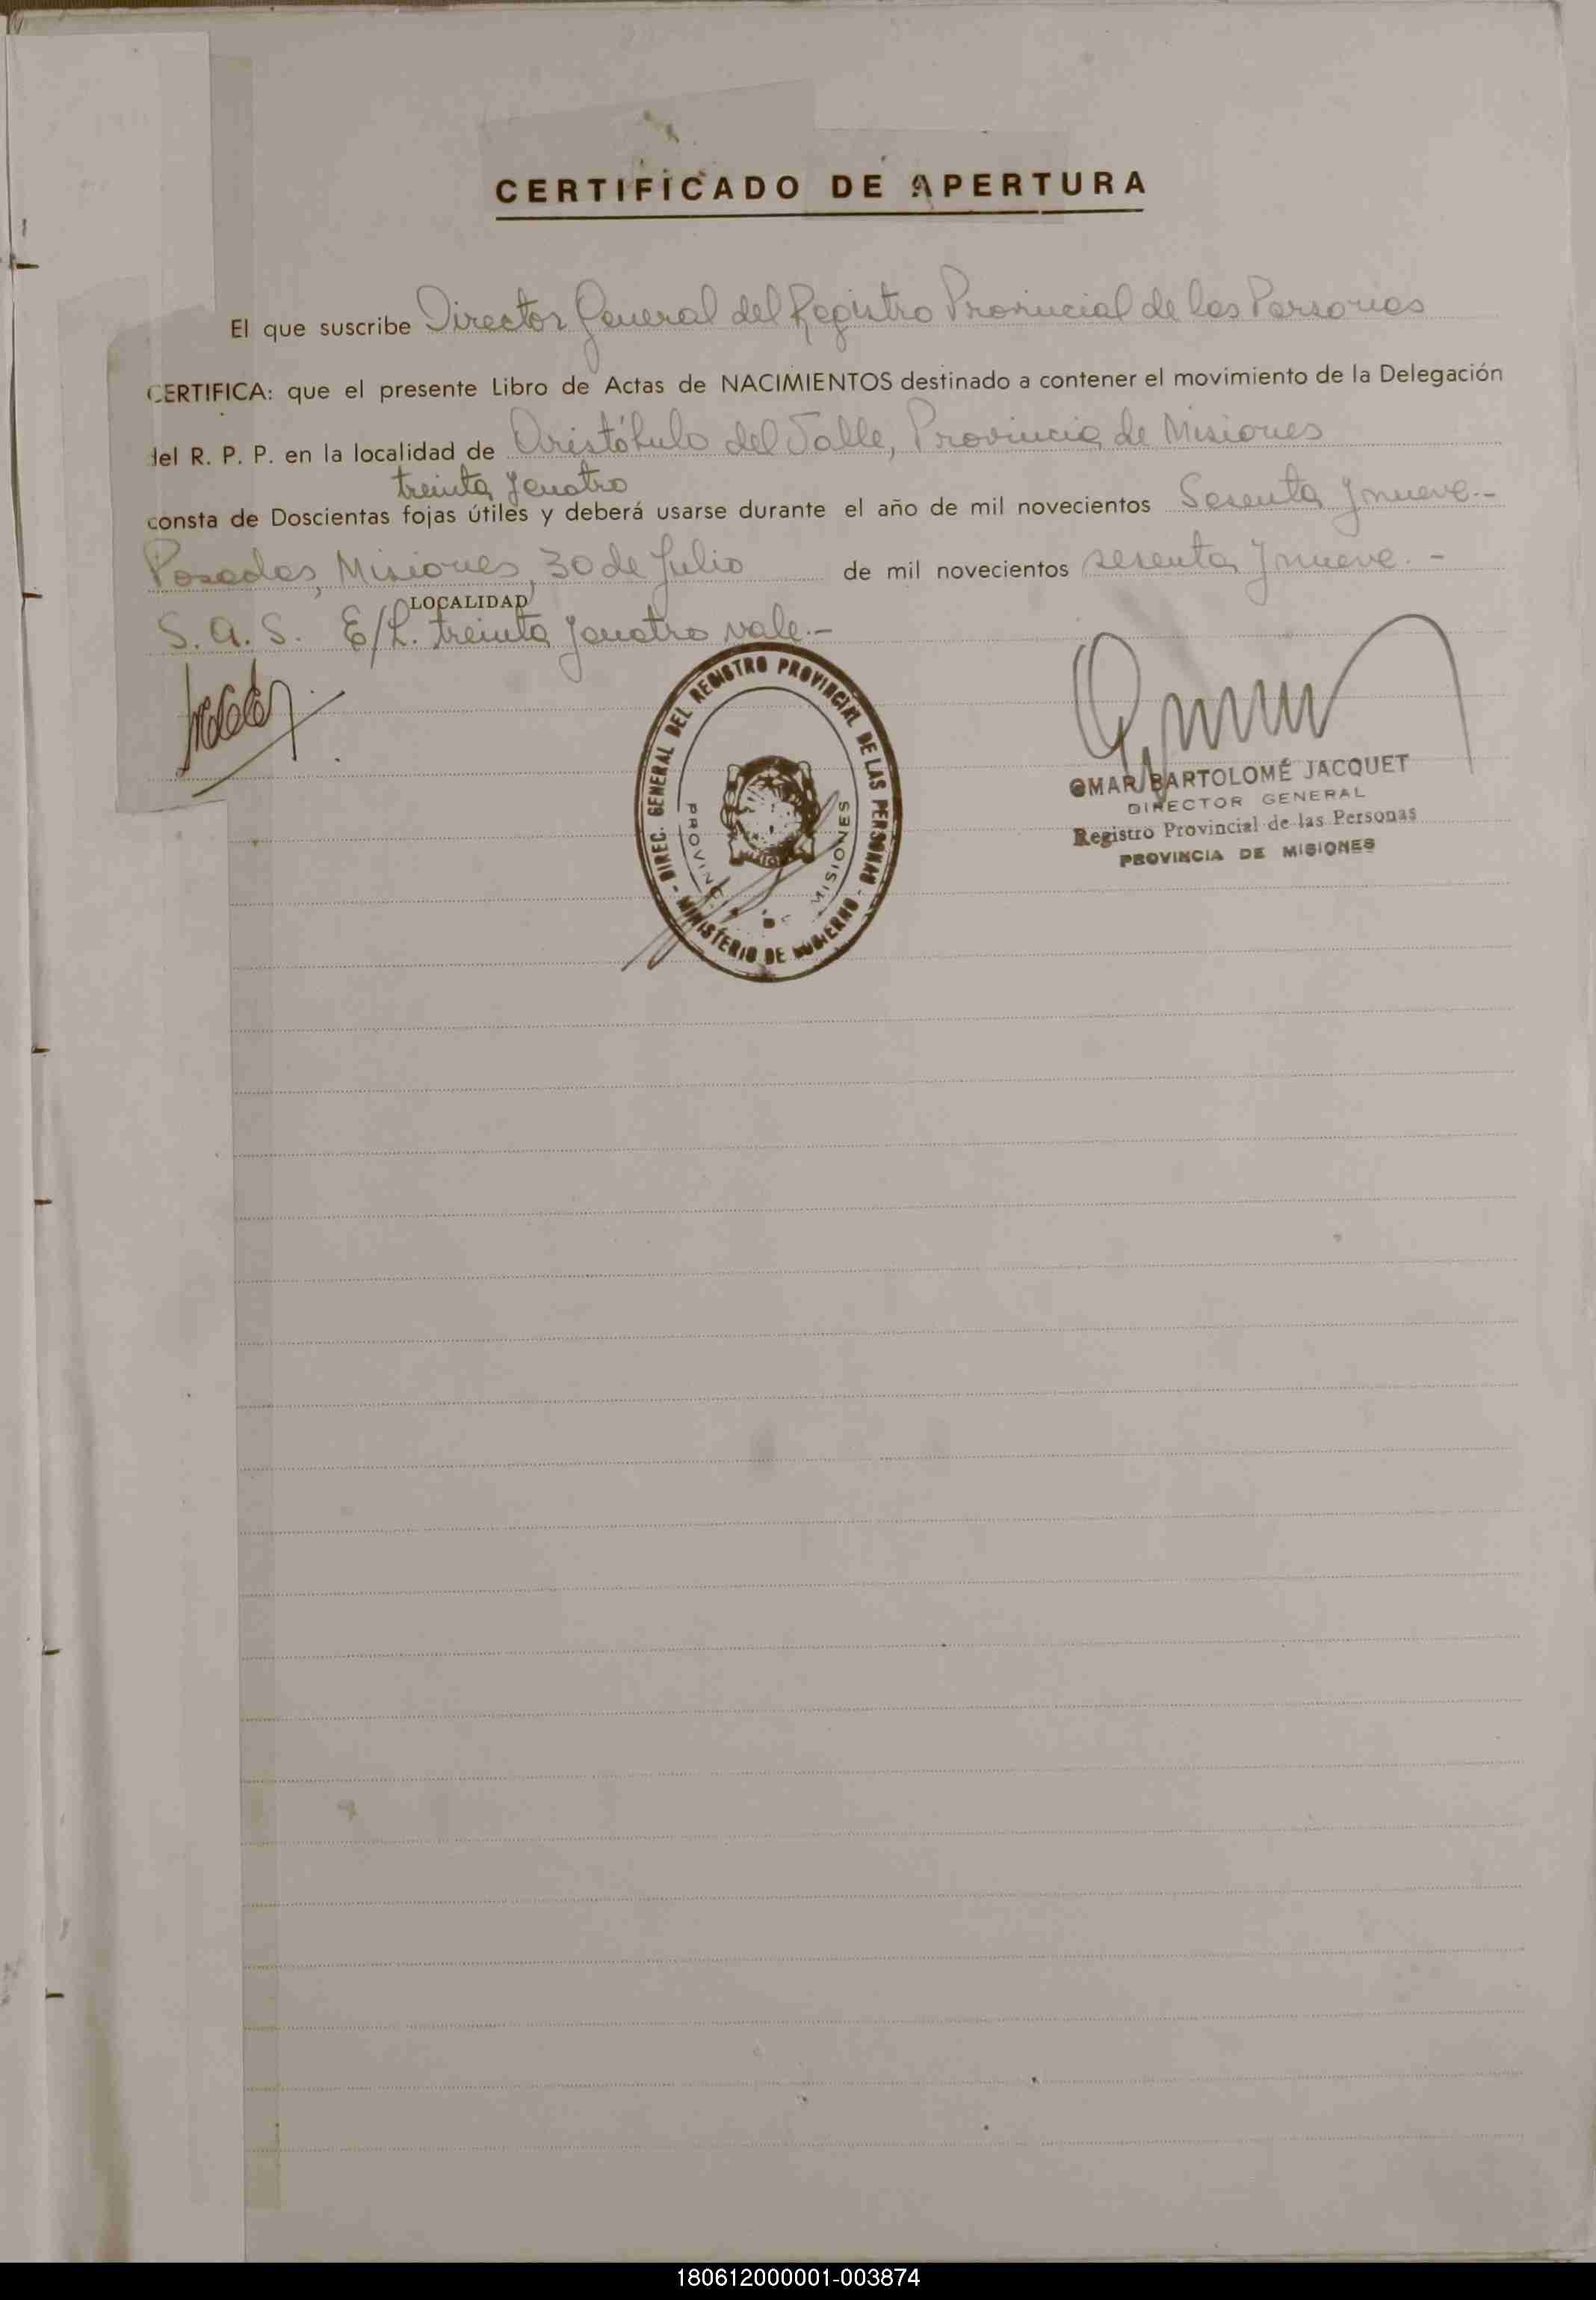 CERTIFICADO DE APERTURA
El que suscribe Director General del Registro Provincial de las Personas
CERTIFICA: que el presente Libro de Actas de NACIMIENTOS destinado a contener el movimiento de la Delegación
del R. P. P. en la localidad de Aristóbulo del Valle, Provincia de Misiones
treinta y cuatro
consta de Doscientas fojas útiles y deberá usarse durante el año de mil novecientos Sesenta y nueve.-
Posadas, Misiones, 30 de Julio de mil novecientos sesenta y nueve.-
LOCALIDAD
S. A. S. E/L. treinta y cuatro vale.-
DIREC. GENERAL DEL REGISTRO PROVINCIAL DE LAS PERSONAS
- MINISTERIO DE GOBIERNO -
MISIONES
OMAR BARTOLOMÉ JACQUET
DIRECTOR GENERAL
Registro Provincial de las Personas
PROVINCIA DE MISIONES
180612000001-003874